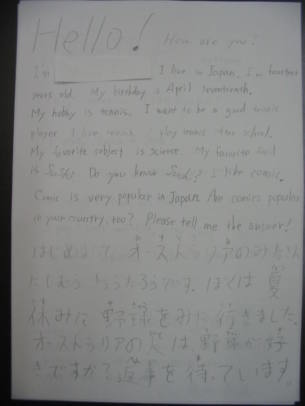 Hello! How are you?
I'm I live in Japan. I'm fourteen
years old. My birthday is April seventeenth.
My hobby is tennis. I want to be a good tennis
player. I play tennis after school.
My favorite subject is science. My favorite food
is Sushi. Do you know Sushi? I like comic.
Comic is very popular in Japan. Are comics popular
in your country, too? Please tell me the answer!
はじめまして、オーストラリアのみなさん
です。ぼくは夏
休みに野球をみに行きました。
オーストラリアの は野球が好
きですか?返事を待っています。